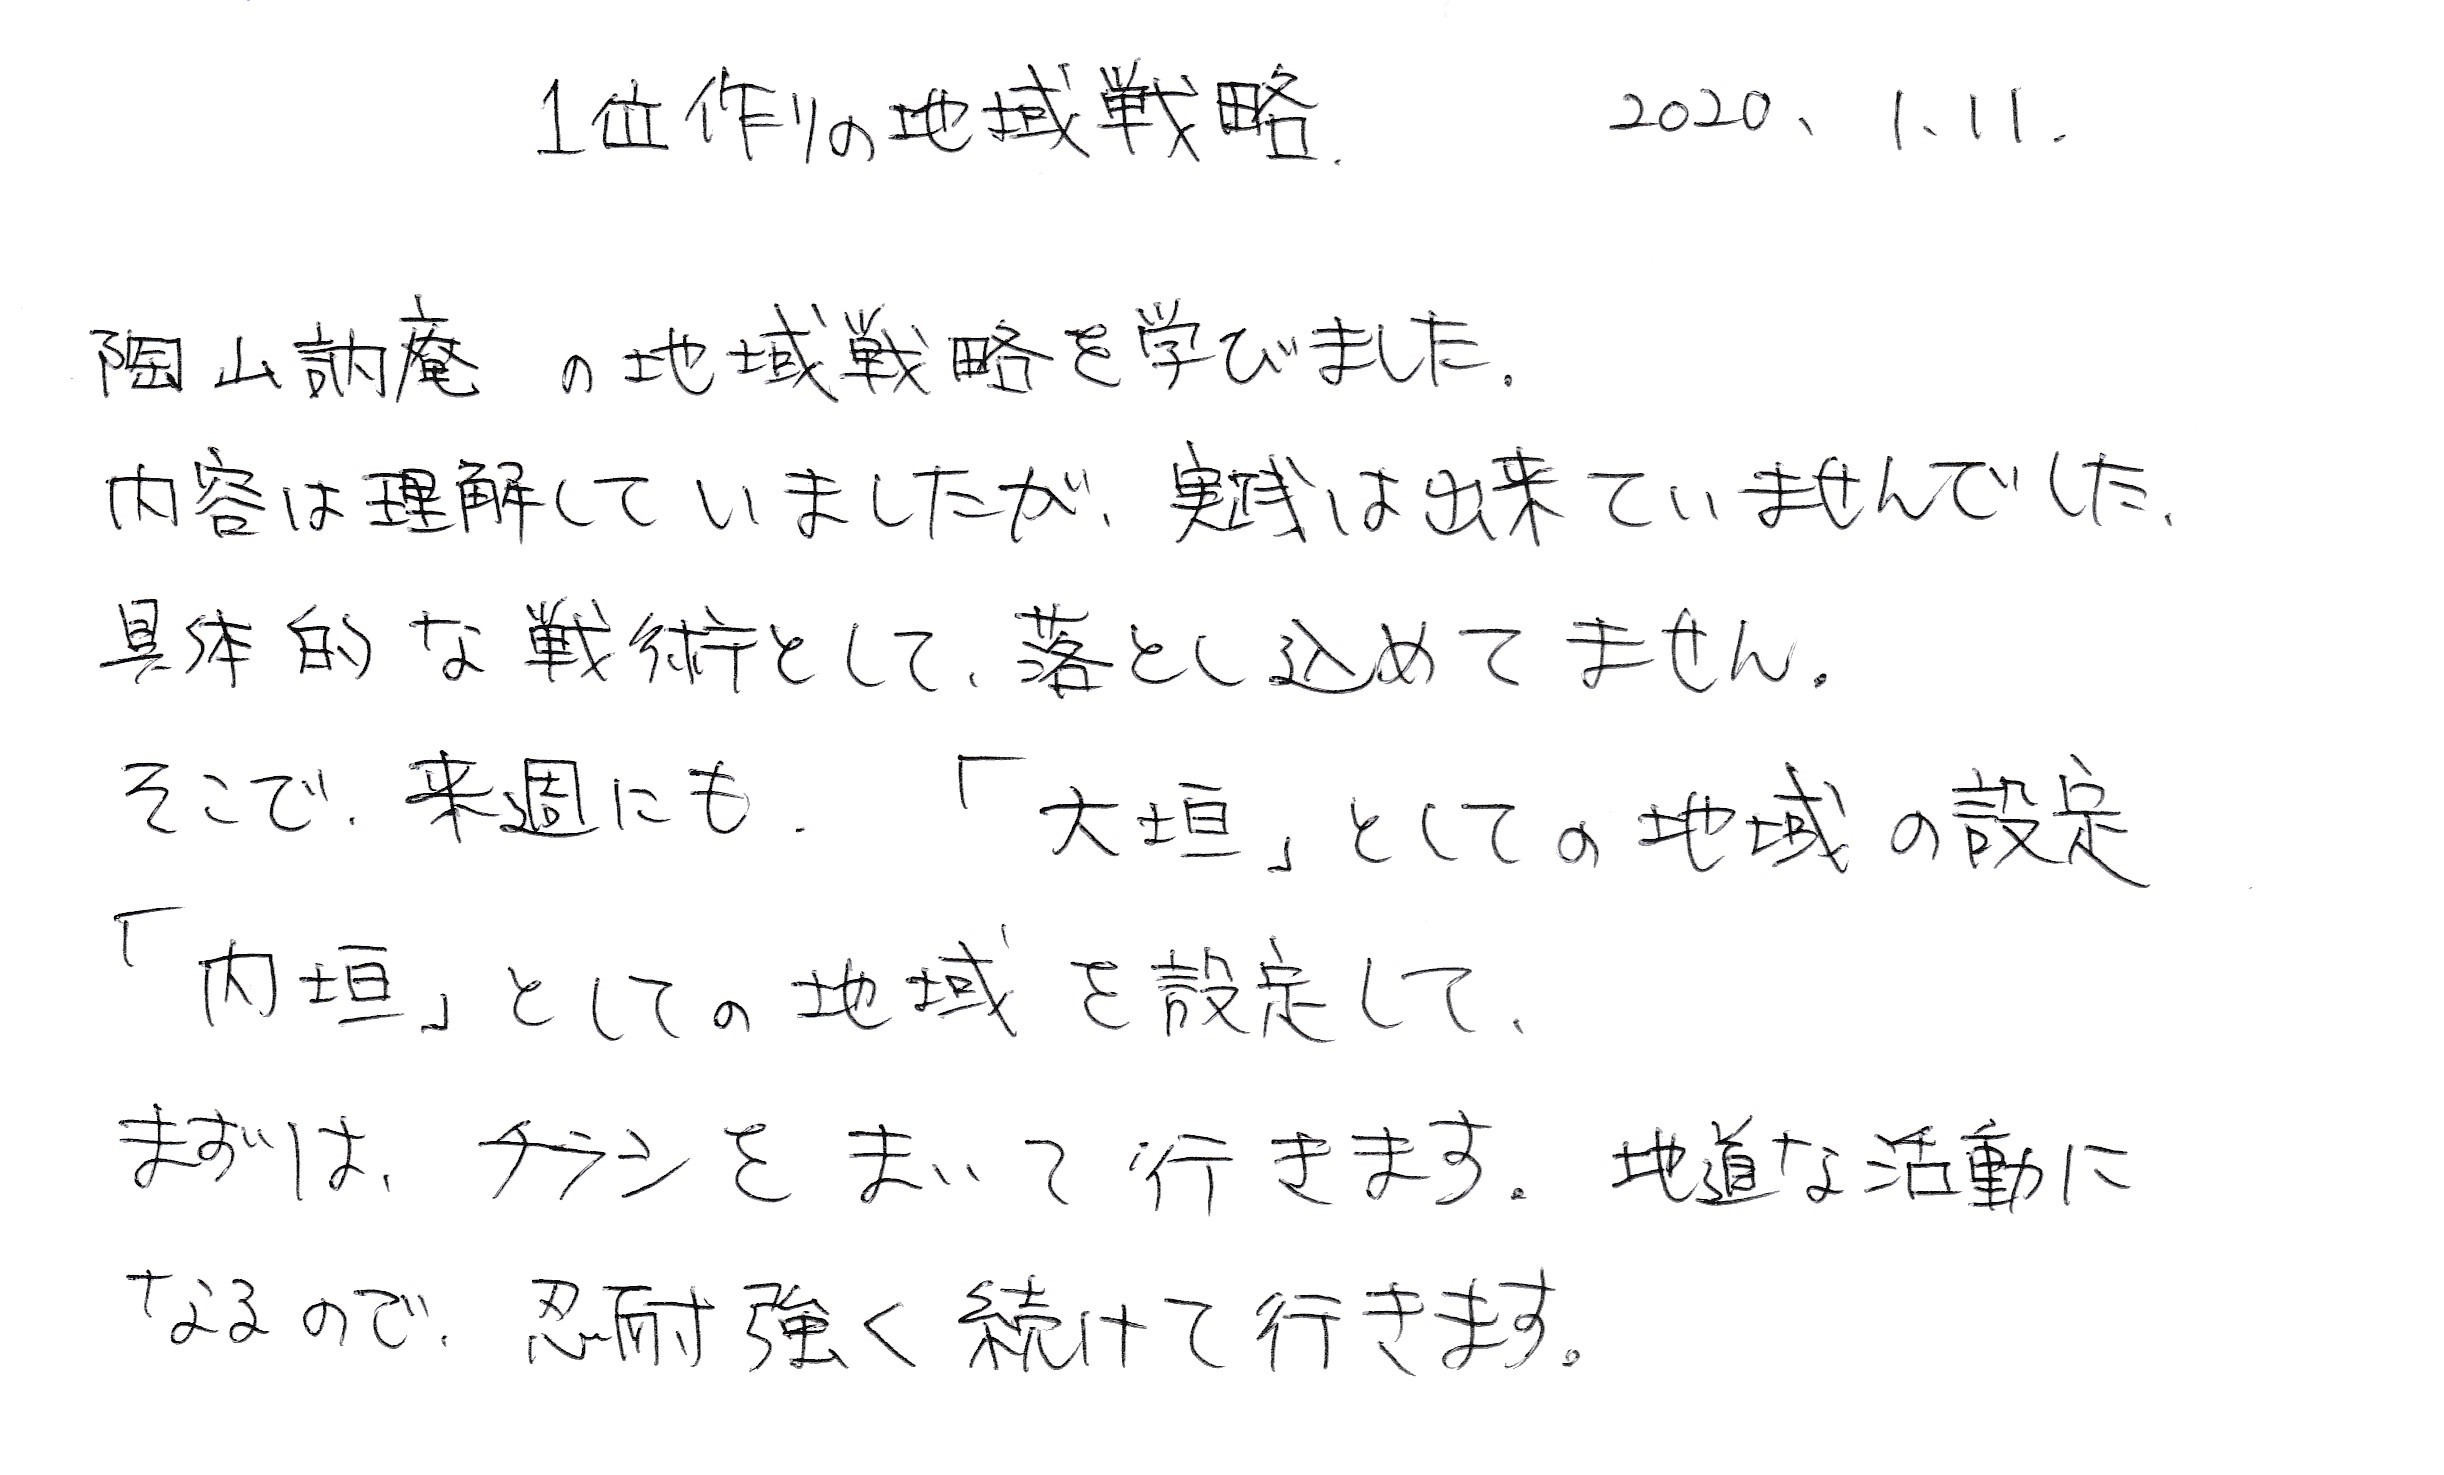 1位作りの地域戦略. 2020、1、11.
陶山訥庵の地域戦略を学びました。
内容は理解していましたが、実践は出来ていませんでした、
具体的な戦術として、落とし込めてません。
そこで、来週にも、「大垣」としての地域の設定
「内垣」としての地域を設定して、
まずは、チラシをまいて行きます。地道な活動に
なるので、忍耐強く続けて行きます。